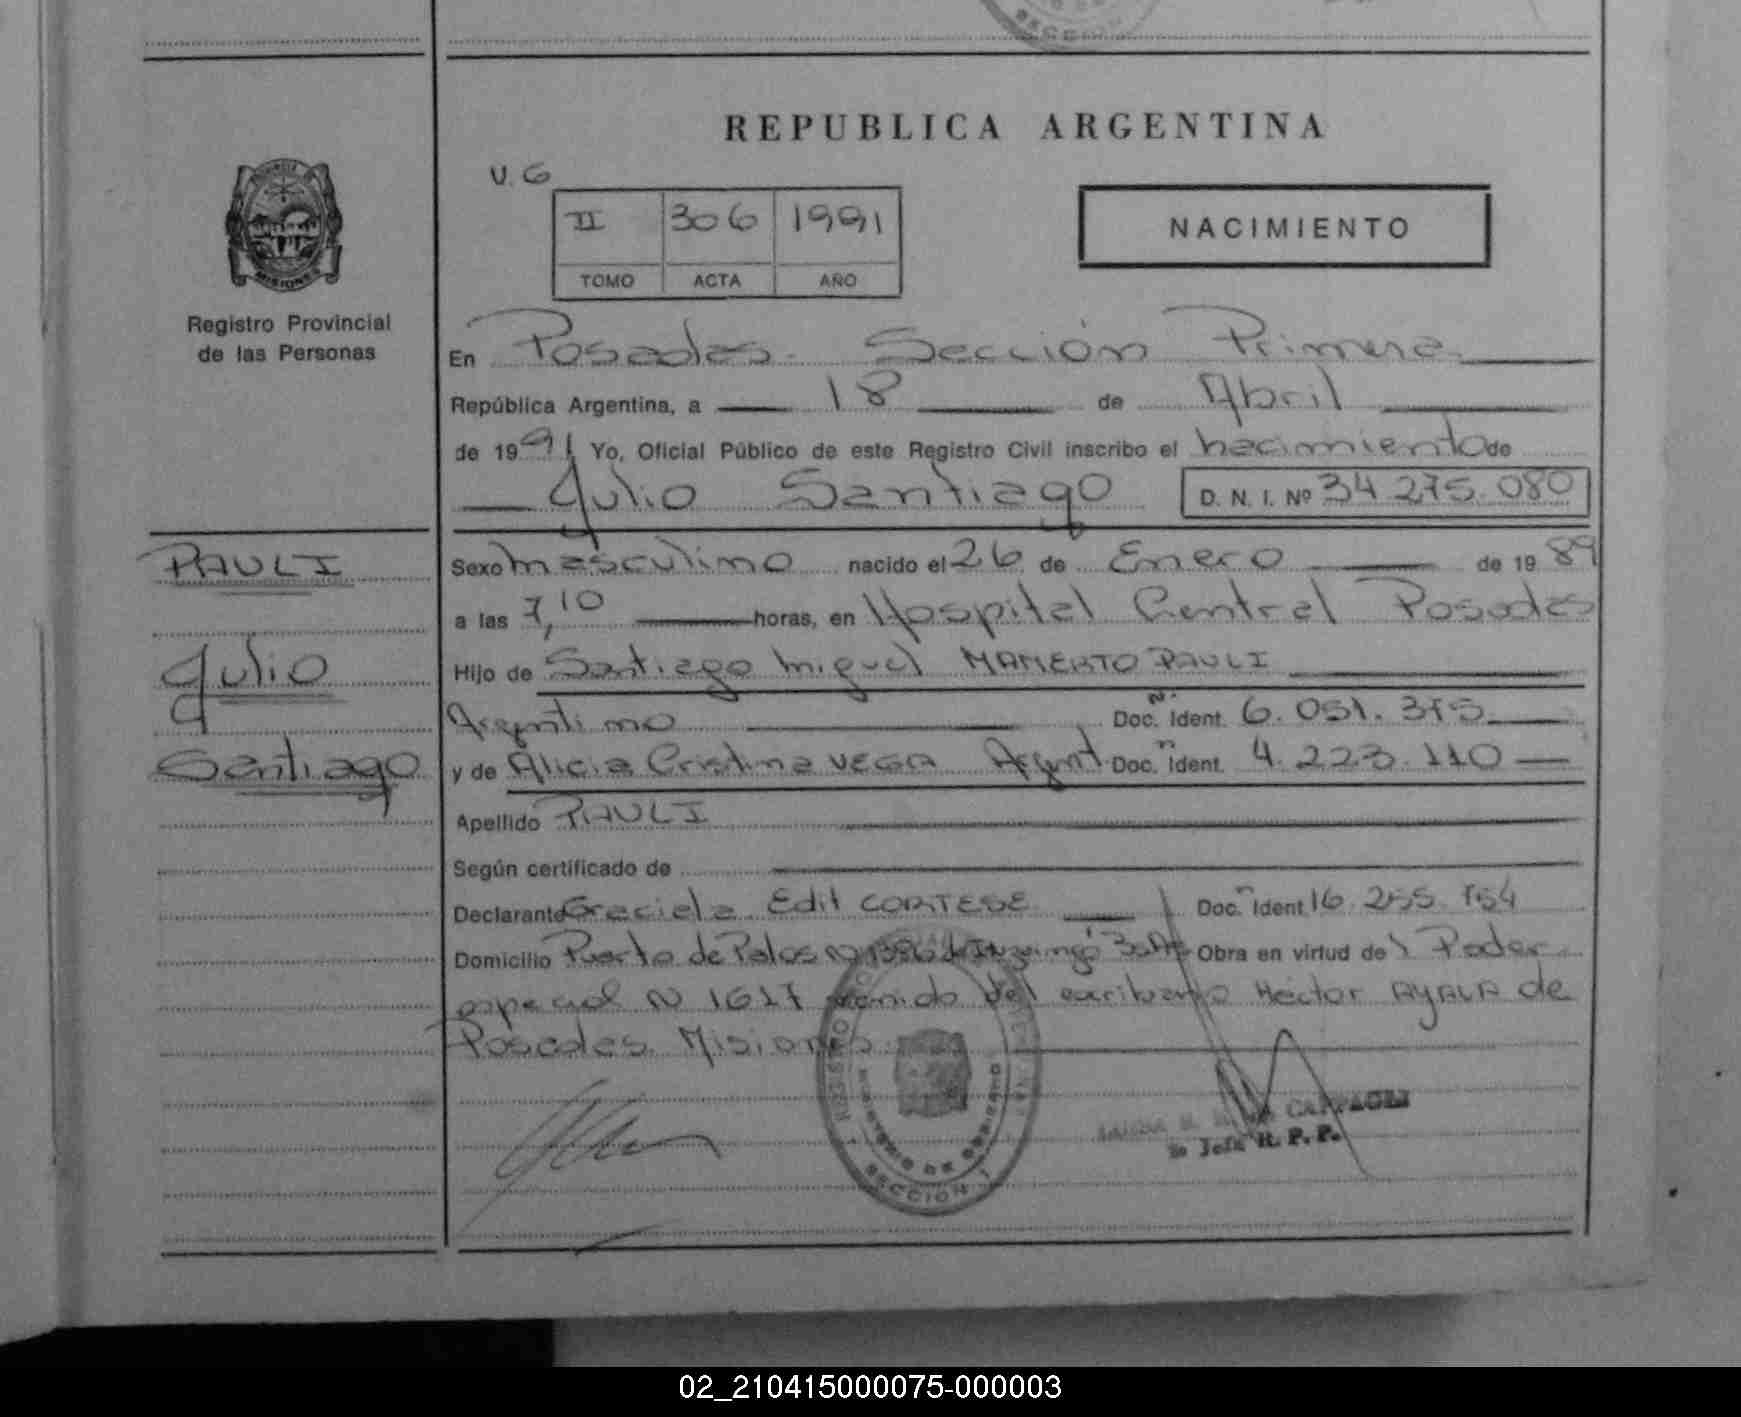 REPUBLICA ARGENTINA
PROVINCIA
MISIONES
Registro Provincial
de las Personas
V. G
II 306 1991
TOMO ACTA AÑO
NACIMIENTO
En Posadas. Sección Primera
República Argentina, a 18 de Abril
de 1991 Yo, Oficial Público de este Registro Civil inscribo el nacimiento de
Julio Santiago D. N. I. Nº 34 275.080
PAULI
Julio
Santiago
Sexo masculino nacido el 26 de Enero de 1989
a las 7,10 horas, en Hospital Central Posadas
Hijo de Santiago Miguel MAMERTO PAULI
Argentino Doc. Ident. 6.051.375
y de Alicia Cristina VEGA Argent. Doc. Ident. 4.223.110
Apellido PAULI
Según certificado de
Declarante Graciela Edit CORTESE Doc. Ident 16.255.754
Domicilio Puerto de Palos Nº 1386 Bs As Obra en virtud de 1 Poder
especial Nº 1617 venido del escribano Héctor AYALA de
Posadas Misiones.
MINISTERIO DE GOBIERNO
SECCION 1
CAPPAGLI
Jefe R. P. P.
02_210415000075-000003